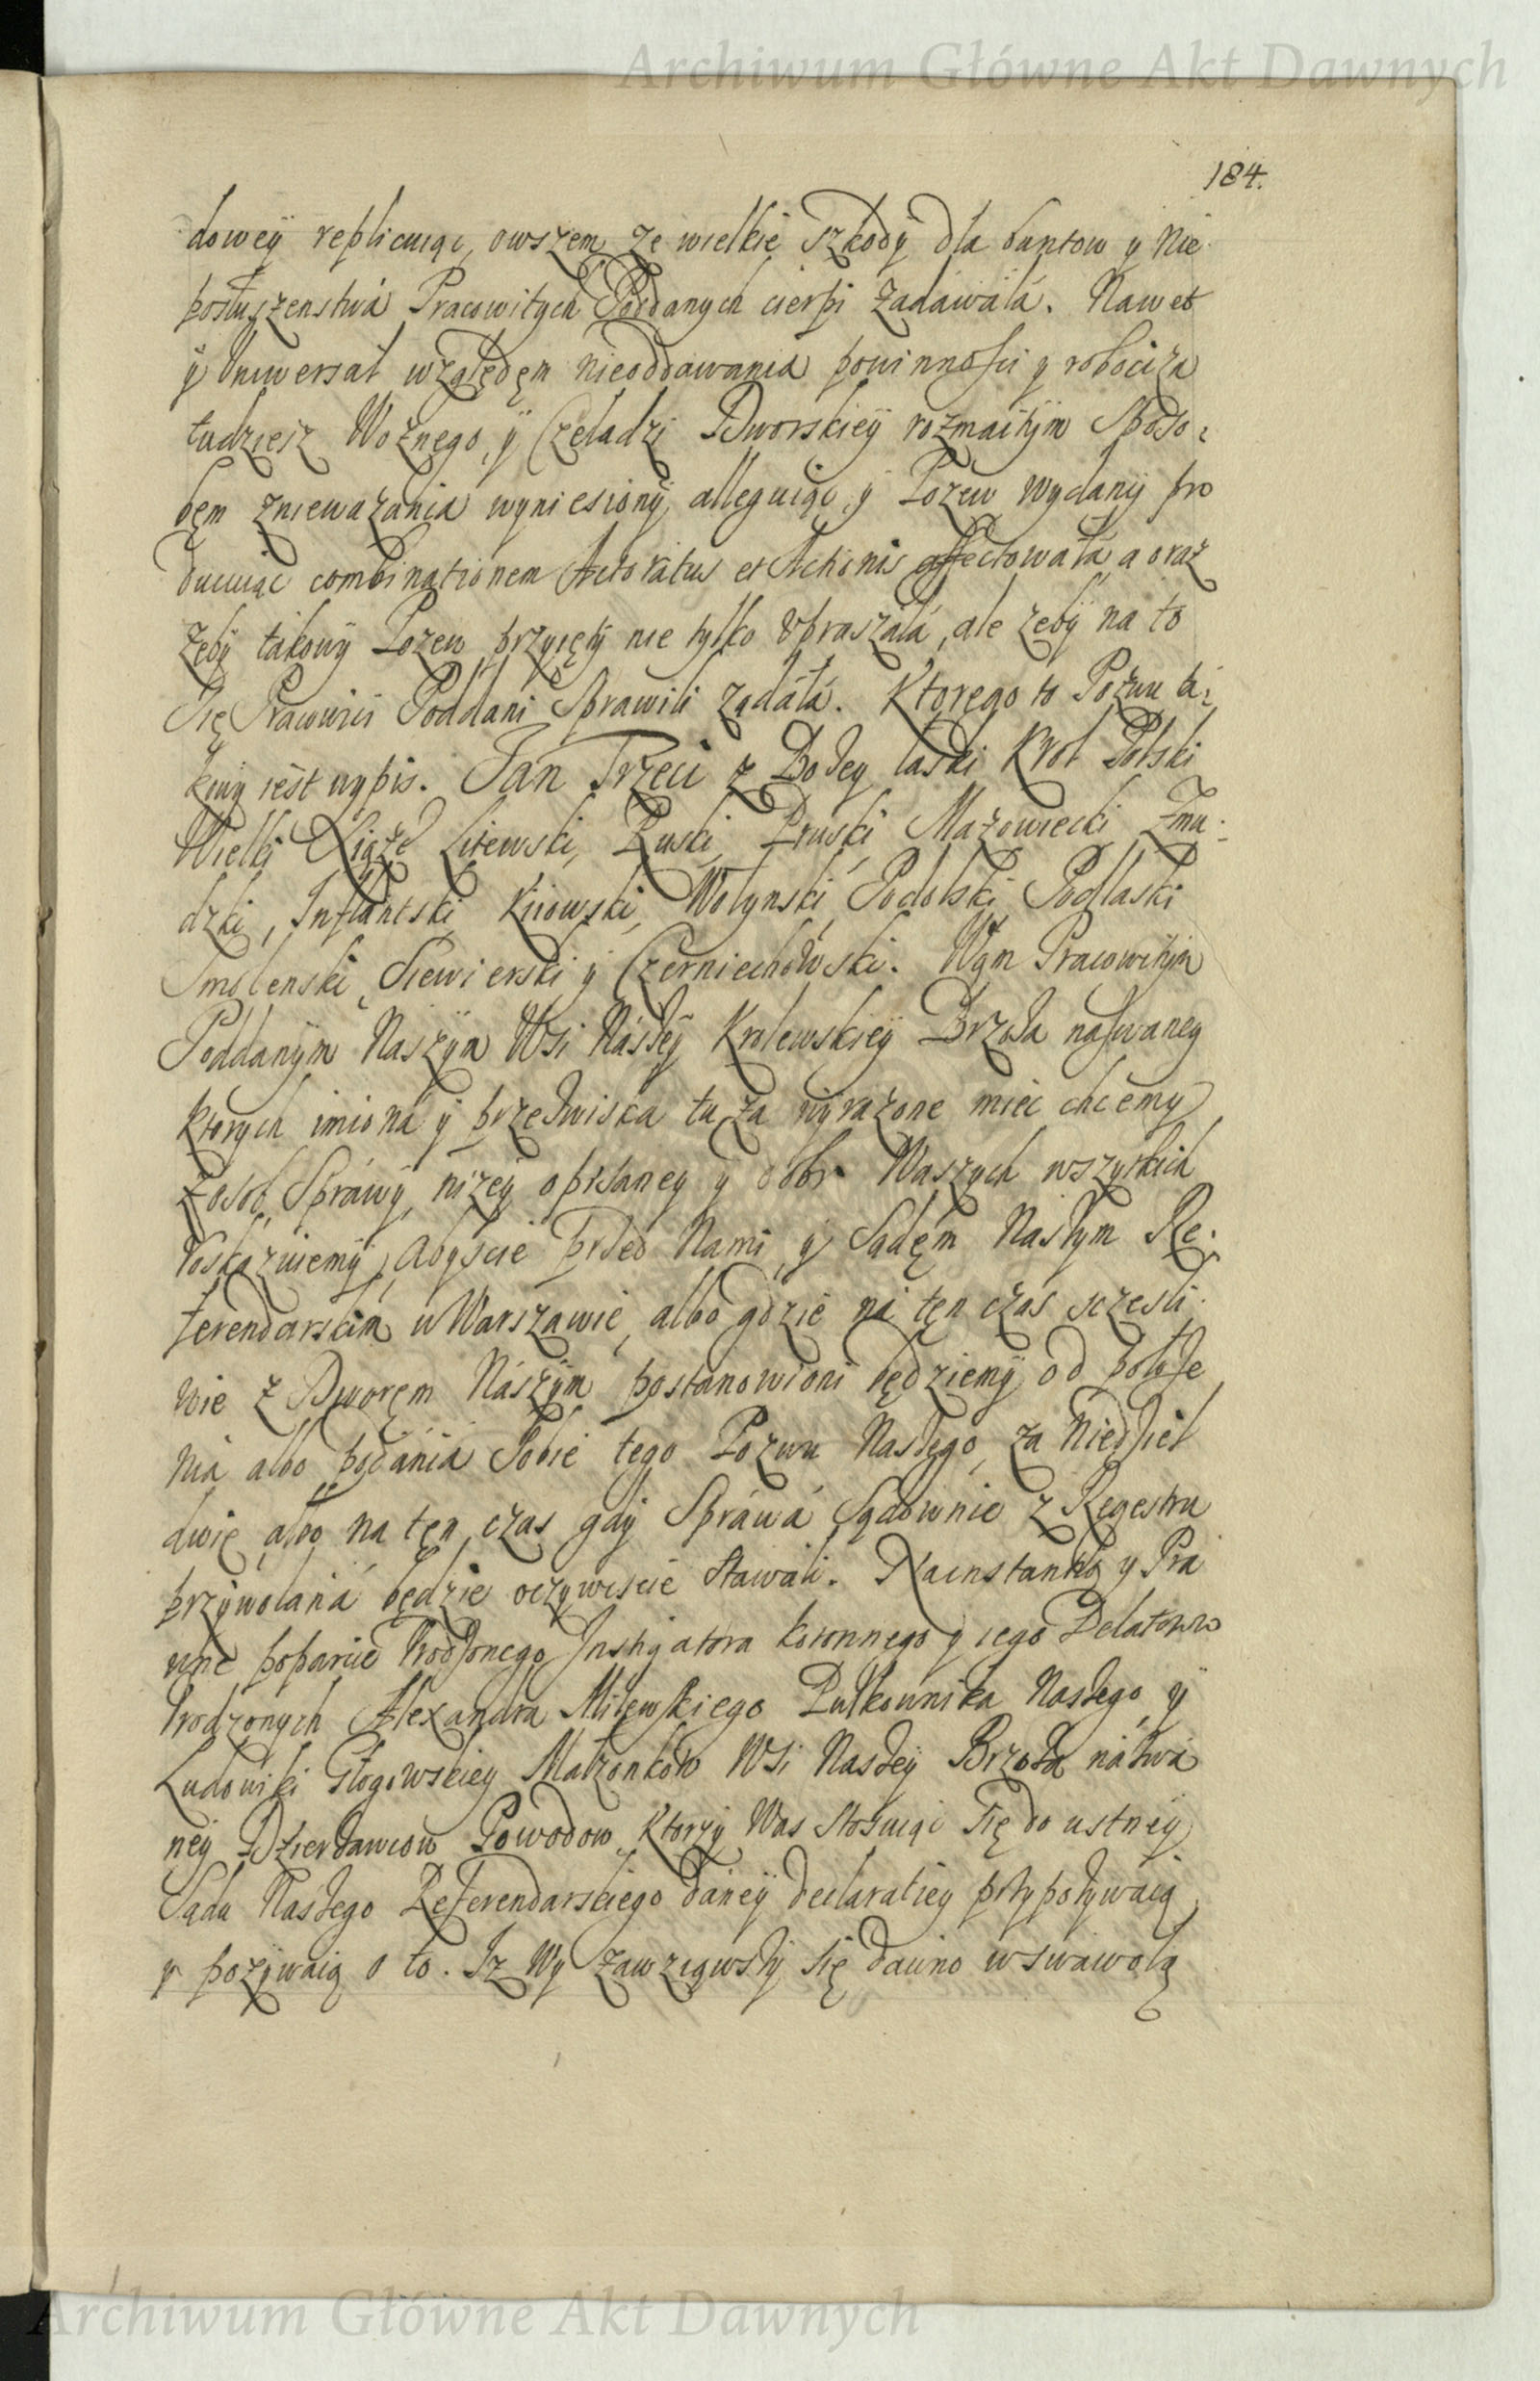 Archiwum Główne Akt Dawnych
184.
dowey replicuiąc, owszem ze wielkie szkody dla buntow y Nie
posłuszenstwá Pracowitych Poddanych cierpi zadawáłá. Nawet
y Uniwersał względęm nieoddawania powinnosci y robocizn
tudziesz Woznego, y Czeladzi Dworskiey rozmaitym sposo
bęm zniewazánia wyniesiony alleguiąc, y Pozew wydany pro
ducuiąc combinationem Actoratus et Actionis affectowáłá a oraz
zeby takowy Pozew przyięty nie tylko upraszáłá, ale zeby na to
Się Pracowici Poddani sprawili ządáłá. Ktorego to Pozwu tá
kowy iest wypis. Jan Trzeci z Bozey łaski Krol Polski
Wielki Xiąże Litewski, Ruski, Pruski, Mazowiecki, Zmu
dzki, Inflantski, Kiiowski, Wołynski, Podolski, Podlaski
Smolenski, Siewierski y Czerniechowski. Wam Pracowitym
Poddanym Naszym Wsi Nászey Krolewskiey Brzoza názwaney
Ktorych imioná y przezwiska tu za wyrazone miec chcemy
z osob, Spráwy nizey opisaney y dobr Waszych wszytkich
roskazuiemy, Abyscie przed Nami y Sądęm Naszym Re
ferendarskim w Warszawie, albo gdzie ná tęn czás sczęsli
wie z Dworęm Nászym postanowioni będziemy od połoze
niá albo podánia Sobie tego Pozwu Naszego, za Niedziel
dwie albo na tęn czas gdy Spráwá Sądownie z Regestru
przywołaniá będzie oczywiscie stawali. Na instantią y Pra
wne poparcie Urodzonego Instigatora Koronnego y iego Delatorow
Urodzonych Alexandra Milewskiego Pułkownika Naszego, y
Ludowiki Głogowskiey Małzonkow Wsi Naszey Brzoza názwá
ney Dzierzawcow Powodow, Ktorzy Was stosuiąc się do ustney
Sądu Naszego Referendarskiego daney declaratiey przypozywaią
y pozywaią o to. Iz Wy zawziąwszy się dawno w swawolą
Archiwum Główne Akt Dawnych